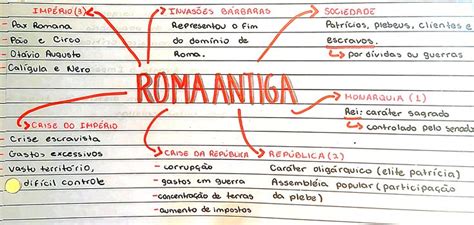 IMPÉRIO (3)
- Pax Romana
- Pão e Circo
- Otávio Augusto
- Calígula e Nero
INVASÕES BÁRBARAS
Representou o fim
do domínio de
Roma.
SOCIEDADE
Patrícios, plebeus, clientes e
escravos.
por dívidas ou guerras
ROMA ANTIGA
MONARQUIA (1)
Rei: caráter sagrado
controlado pelo senado
CRISE DO IMPÉRIO
- Crise escravista
- Gastos excessivos
- vasto território,
difícil controle
CRISE DA REPÚBLICA
- corrupção
- gastos em guerra
- concentração de terras
- aumento de impostos
REPÚBLICA (2)
Caráter oligárquico (elite patrícia)
Assembléia popular (participação
da plebe)